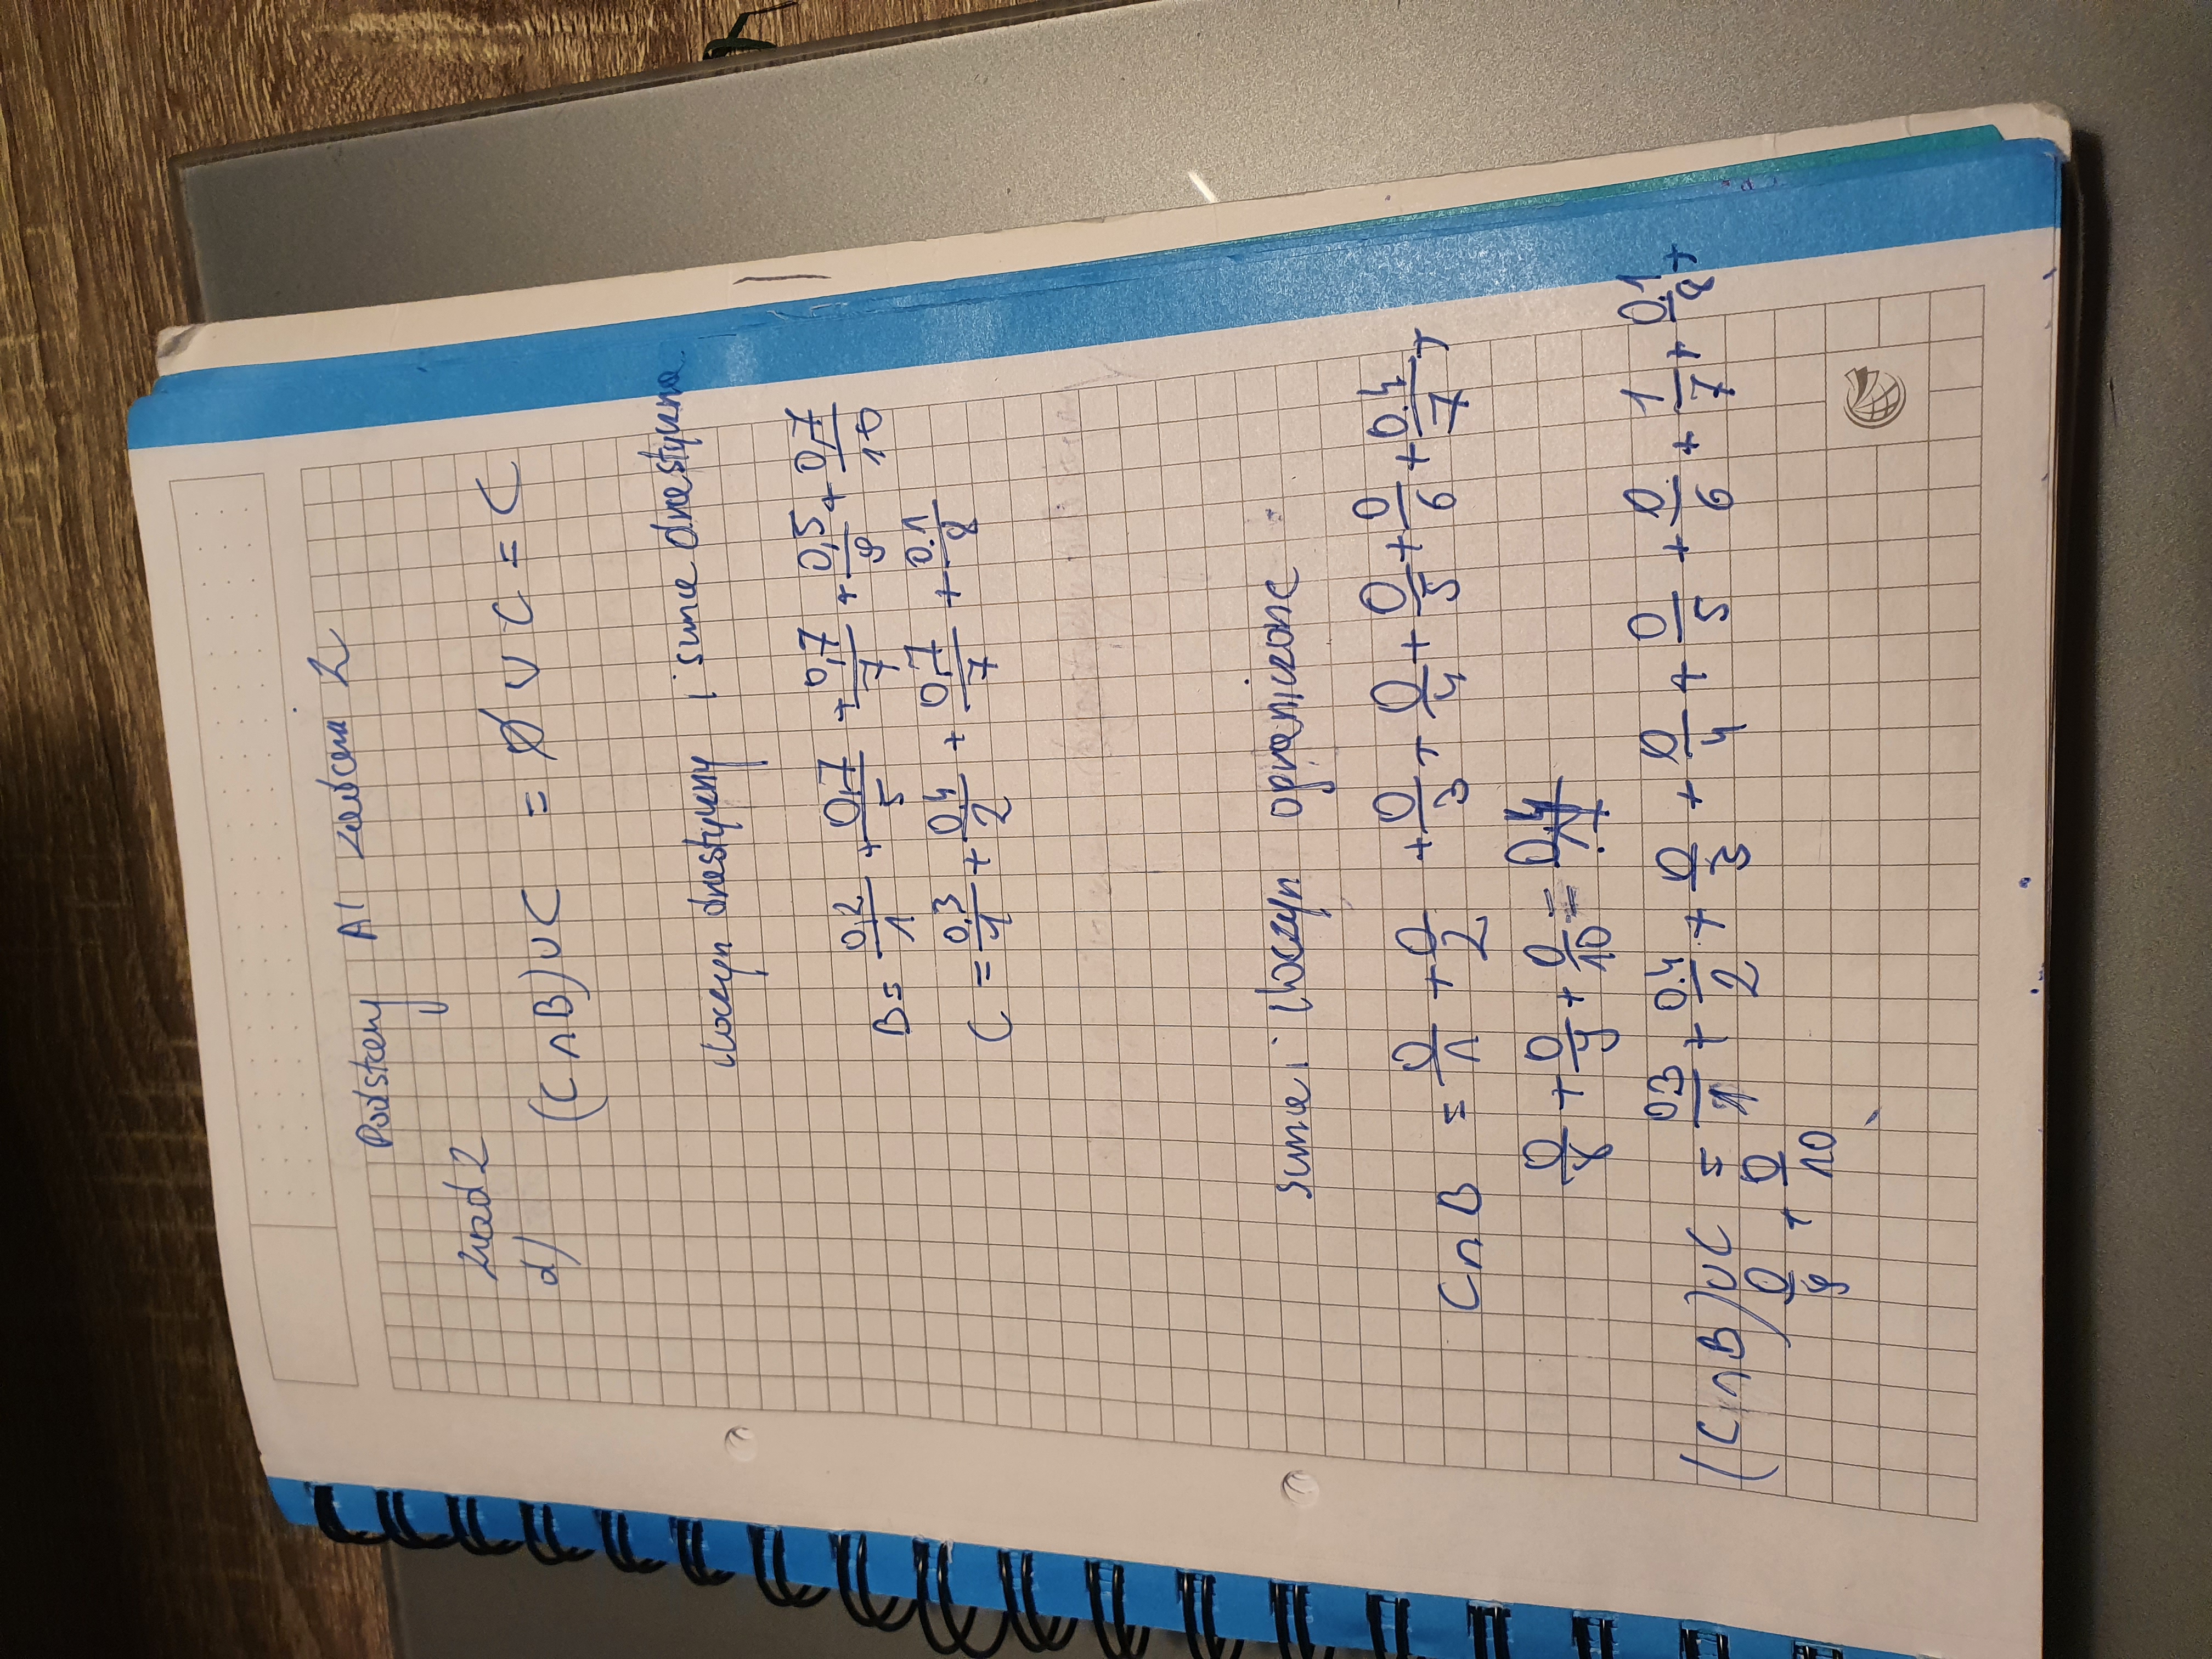 Podstawy AI ćwiczenia 2
zad 2
d) (C∩B)∪C = ∅ ∪ C = C
iloczyn drastyczny i suma drastyczna
B = 0,2/1 + 0,7/5 + 0,7/7 + 0,5/9 + 0,7/10
C = 0.3/1 + 0.4/2 + 0,7/7 + 0.1/8
suma i iloczyn ograniczone
C∩B = 0/1 + 0/2 + 0/3 + 0/4 + 0/5 + 0/6 + 0.4/7 +
0/8 + 0/9 + 0/10 = 0.4/7
(C∩B)∪C = 0.3/1 + 0.4/2 + 0/3 + 0/4 + 0/5 + 0/6 + 1/7 + 0.1/8 +
0/9 + 0/10